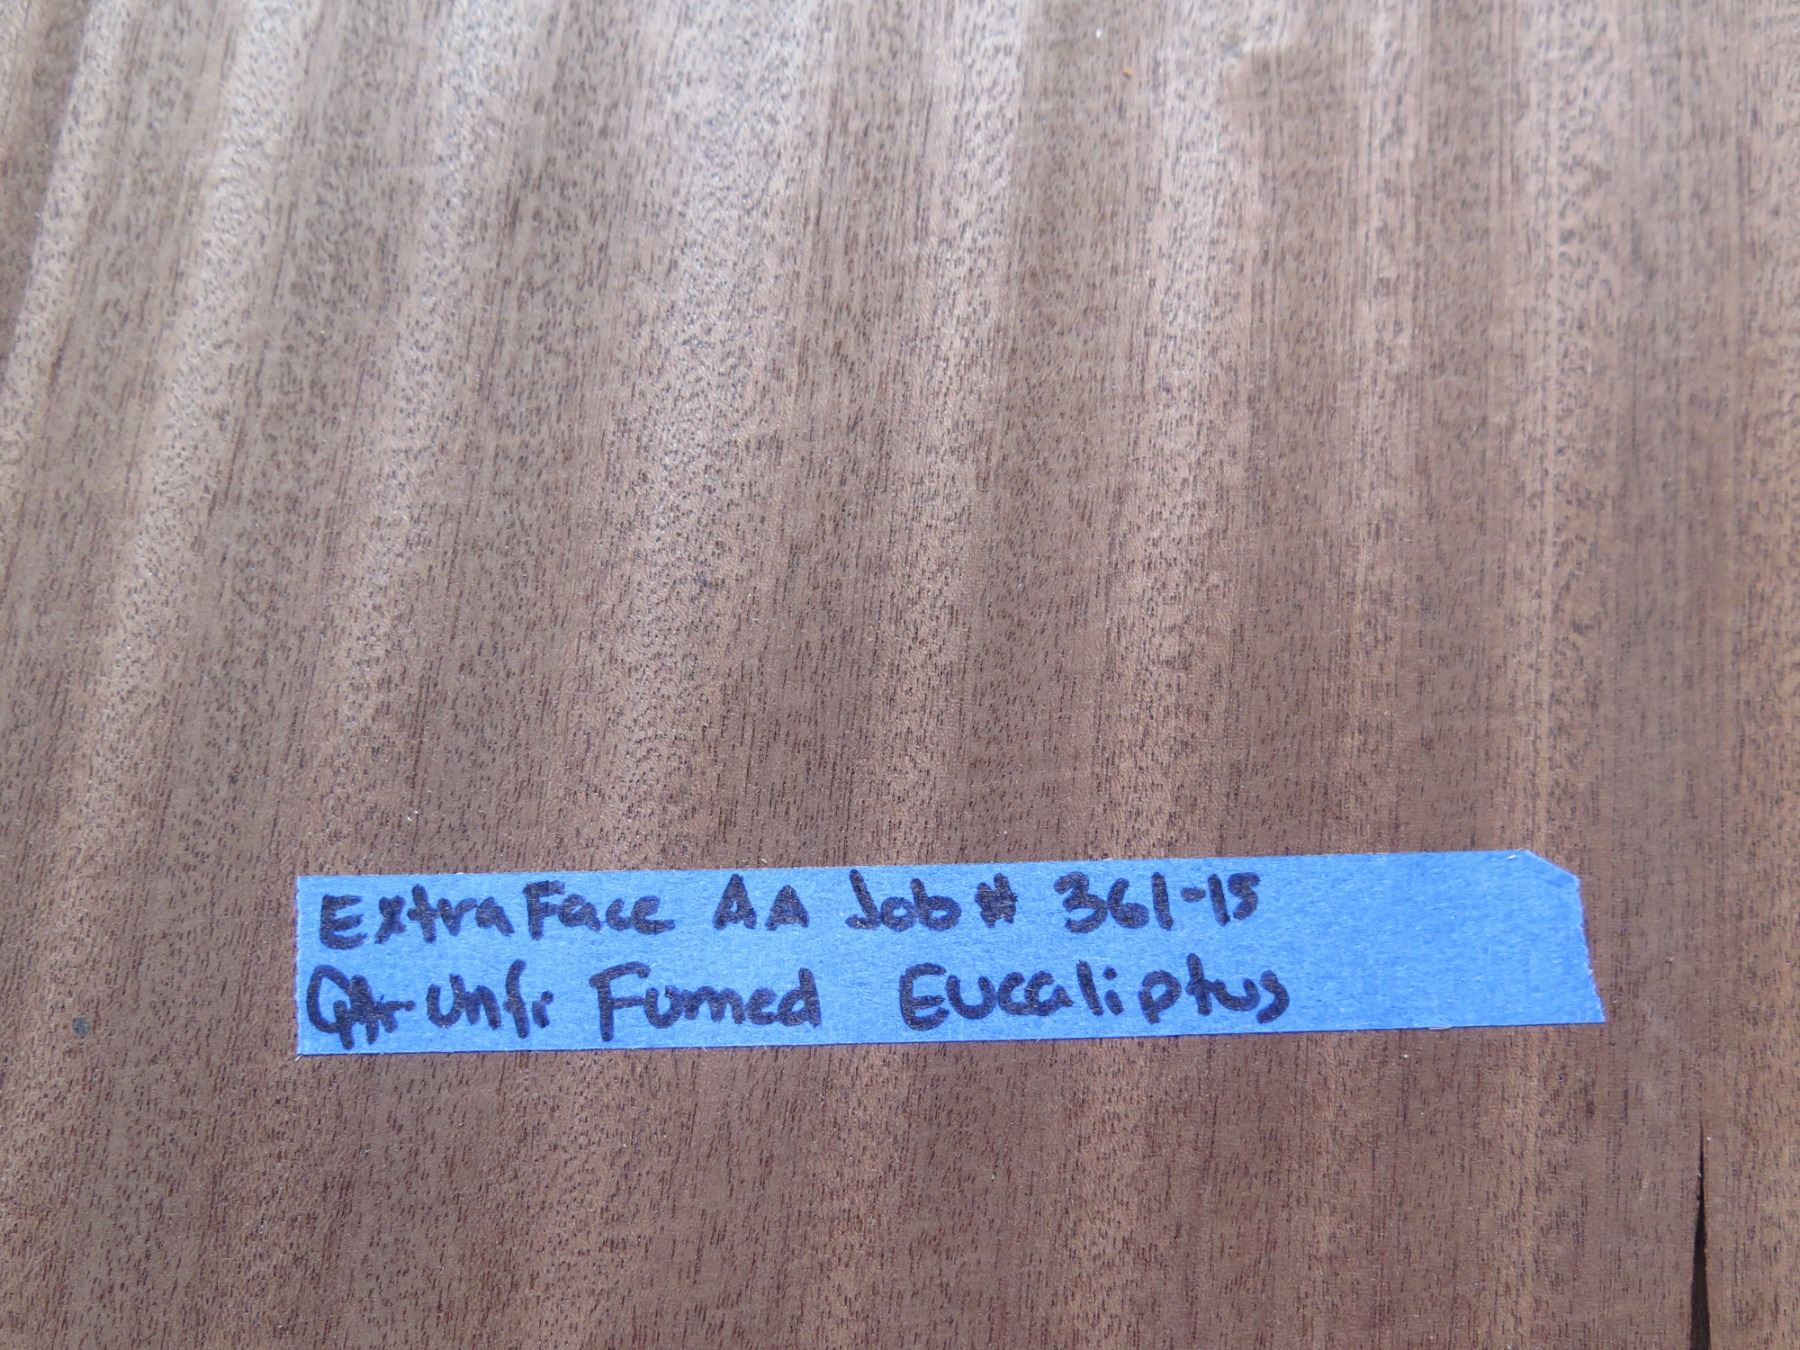 Extra Face AA Job # 361-15
Qtr Unfi Fumed Eucaliptus